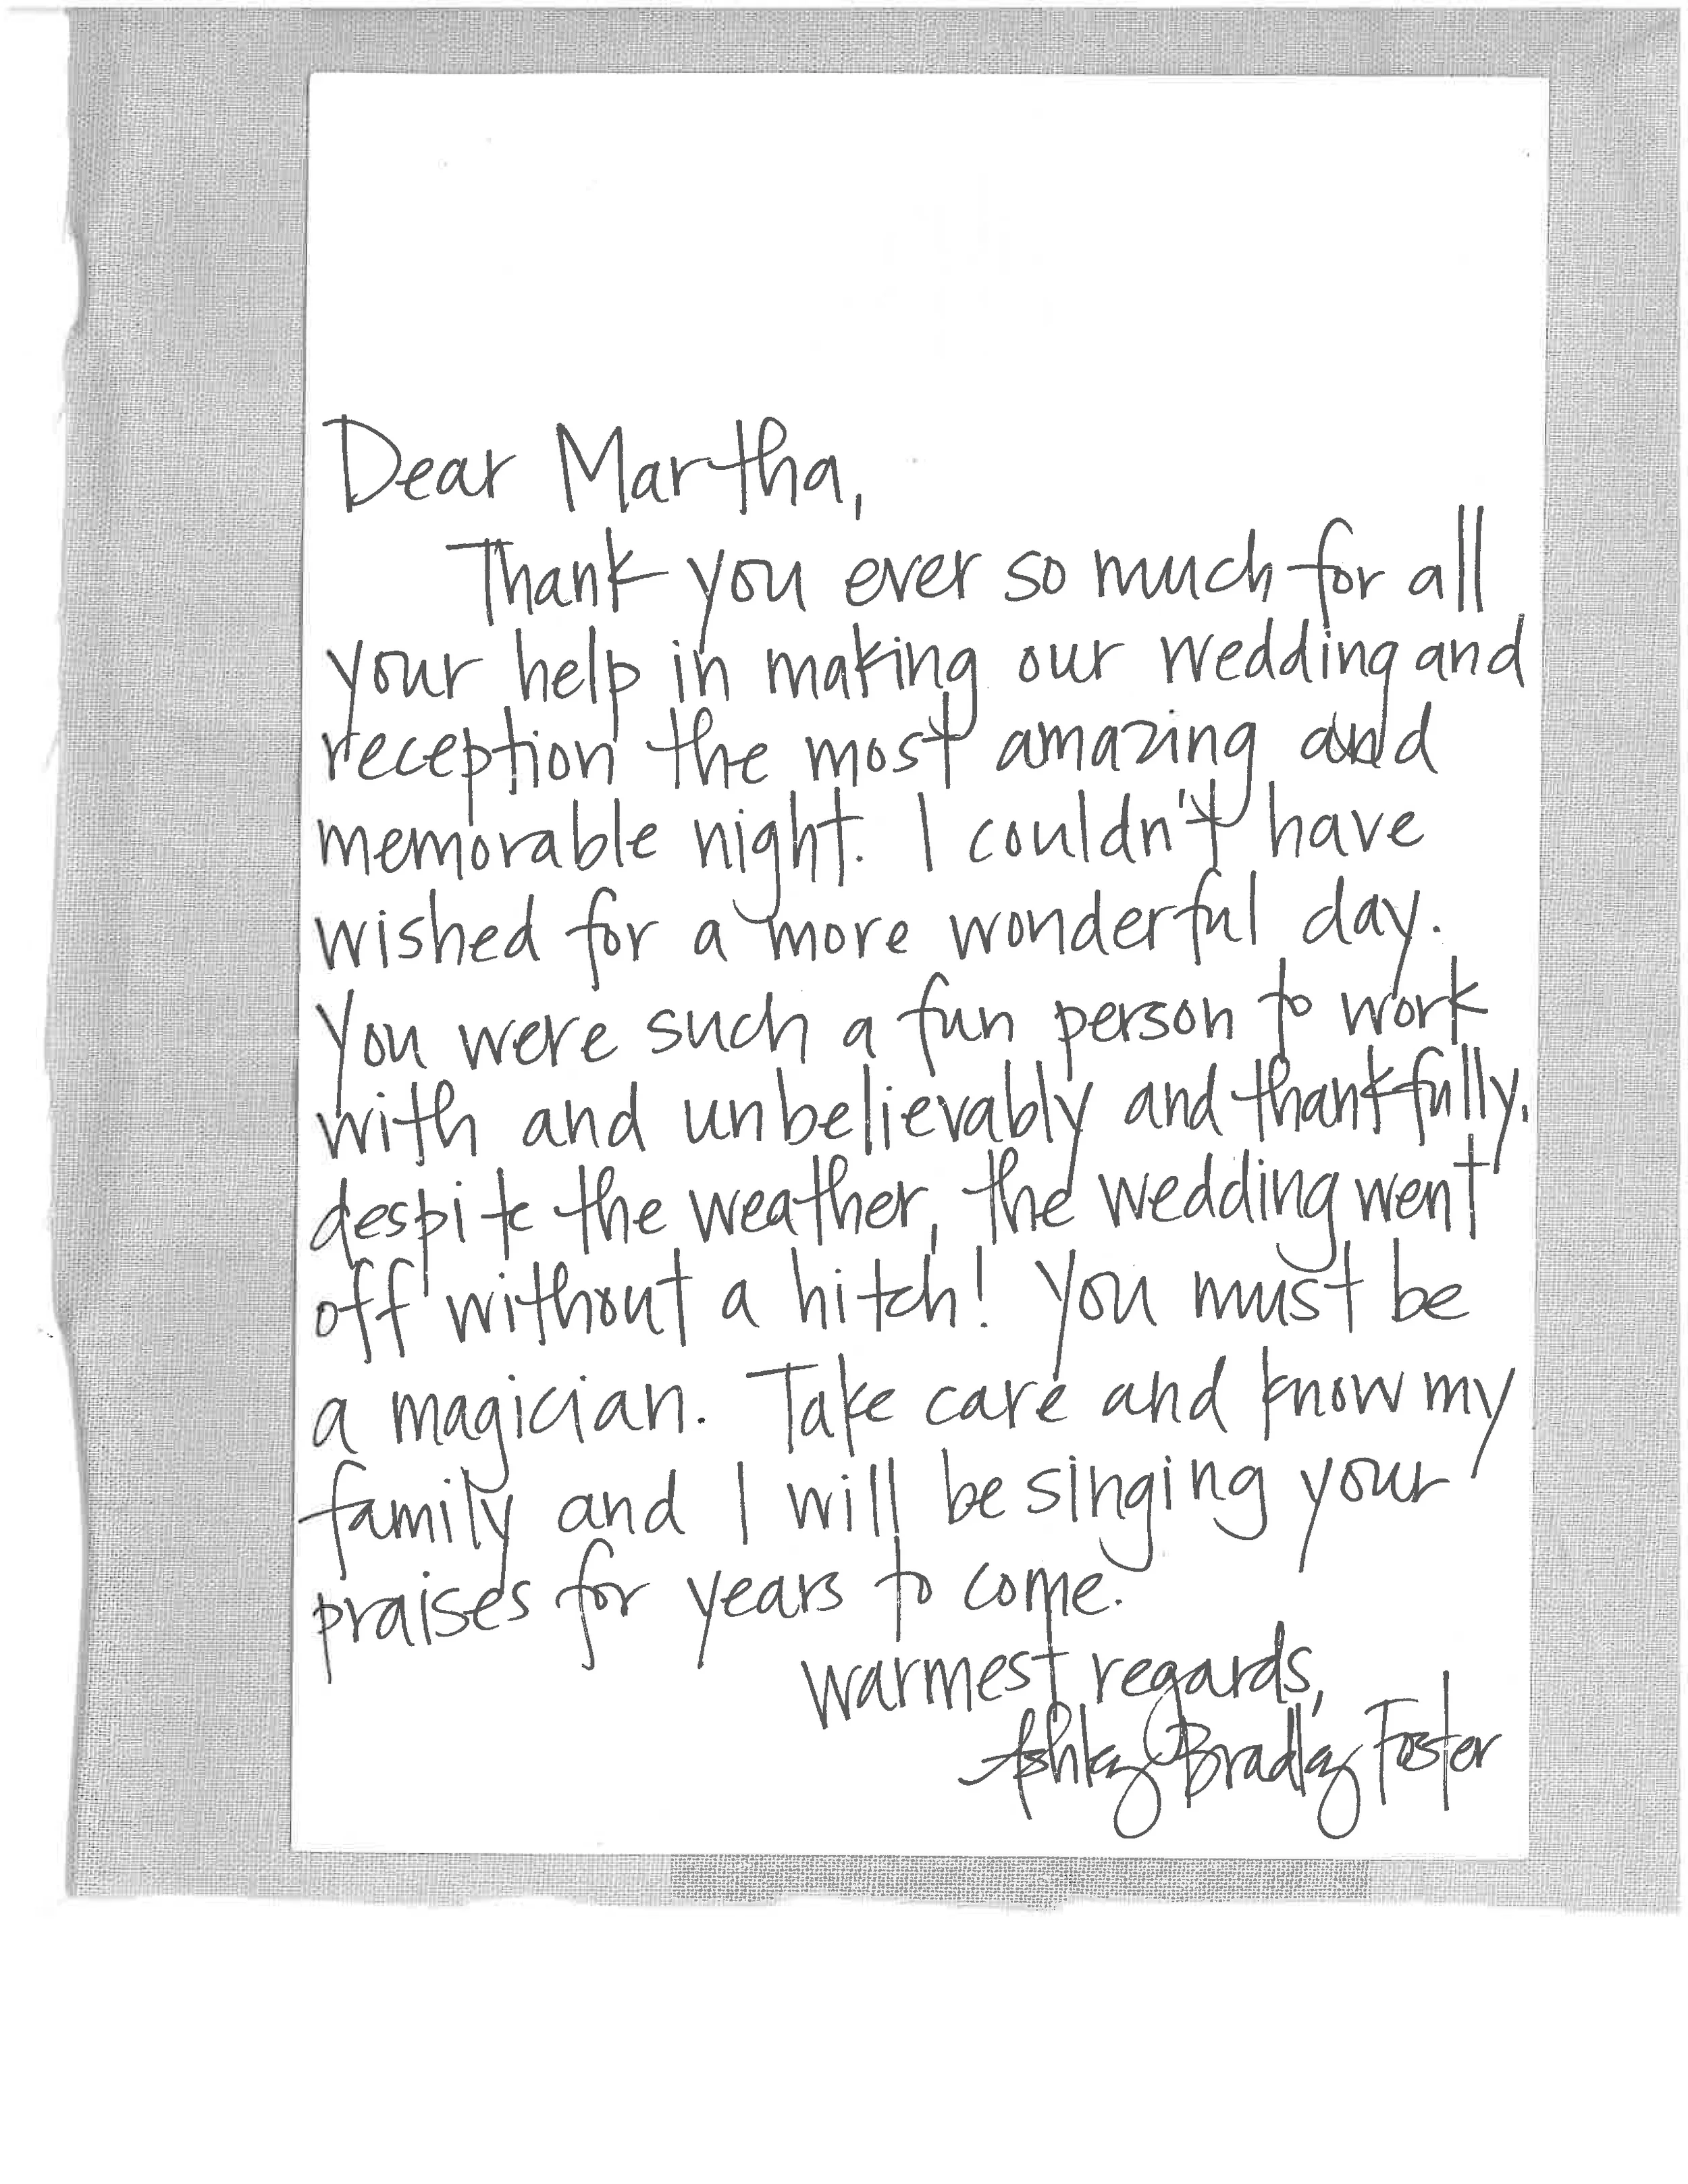 Dear Martha,
Thank you ever so much for all
your help in making our wedding and
reception the most amazing and
memorable night. I couldn't have
wished for a more wonderful day.
You were such a fun person to work
with and unbelievably and thankfully,
despite the weather, the wedding went
off without a hitch! You must be
a magician. Take care and know my
family and I will be singing your
praises for years to come.
Warmest regards,
Ashley Bradley Foster